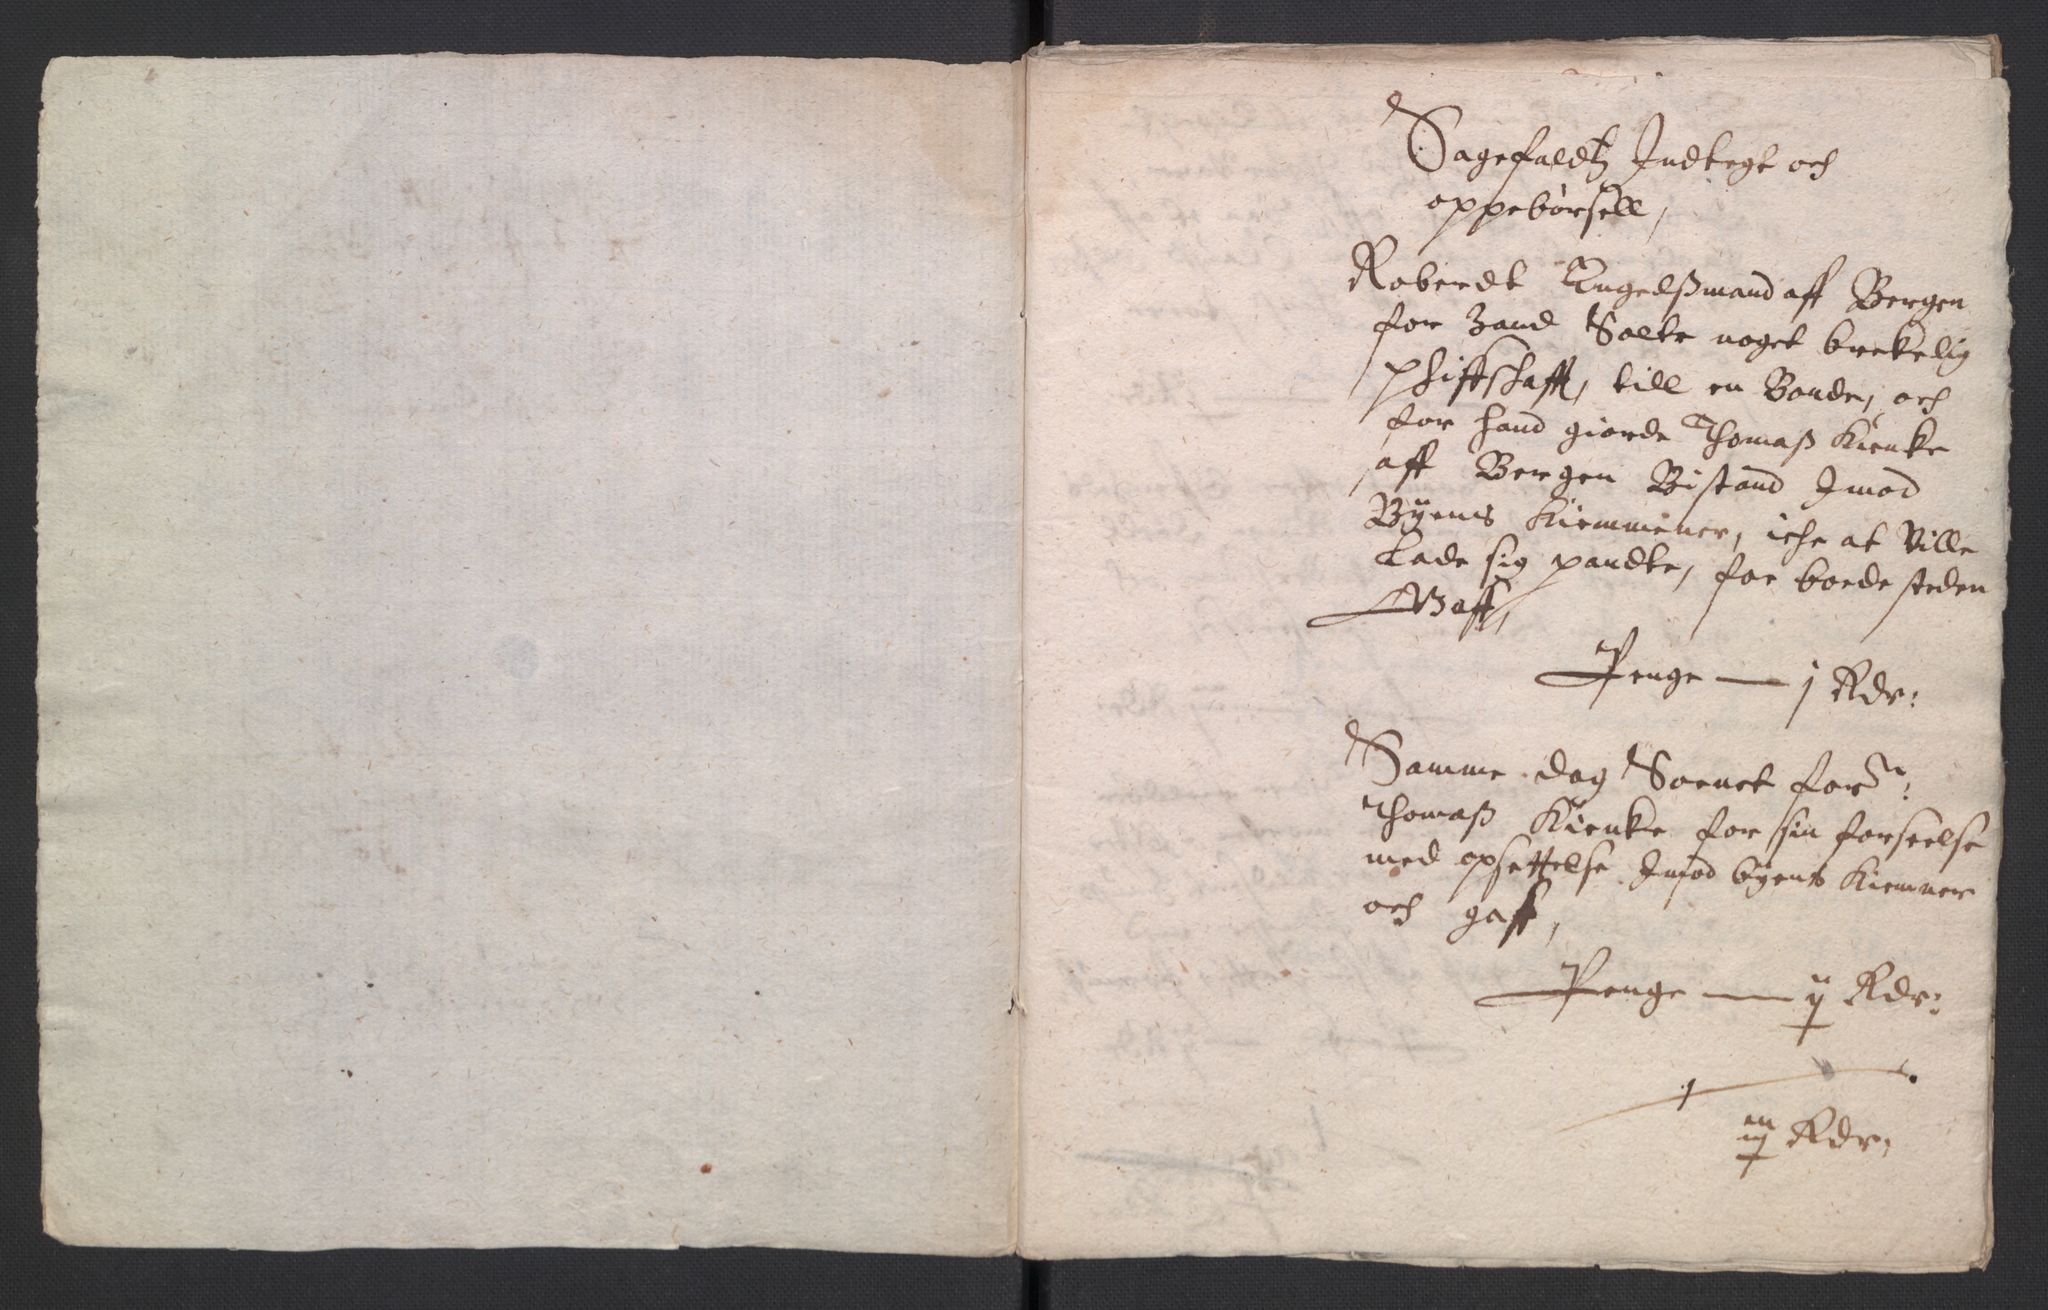 Sagefaldtz Indtegt och
oppebørsell,
Roberdt Engelßmand aff Bergen
for hand Solte noget brekelig
till en Bonde, och
for hand giorde Thomaß Kienke
aff Bergen Bistand Imod
Byens Kiemmener, iche at Ville
Lade sig pandte, for boede steden
Gaff,
Penge — j Rdr:
Samme dag Soenet forne:
Thomaß Kienke for sin forseelse
med opsettelse Imod byens Kiemner
och gaff,
Penge — ij Rdr:
iij Rdr: